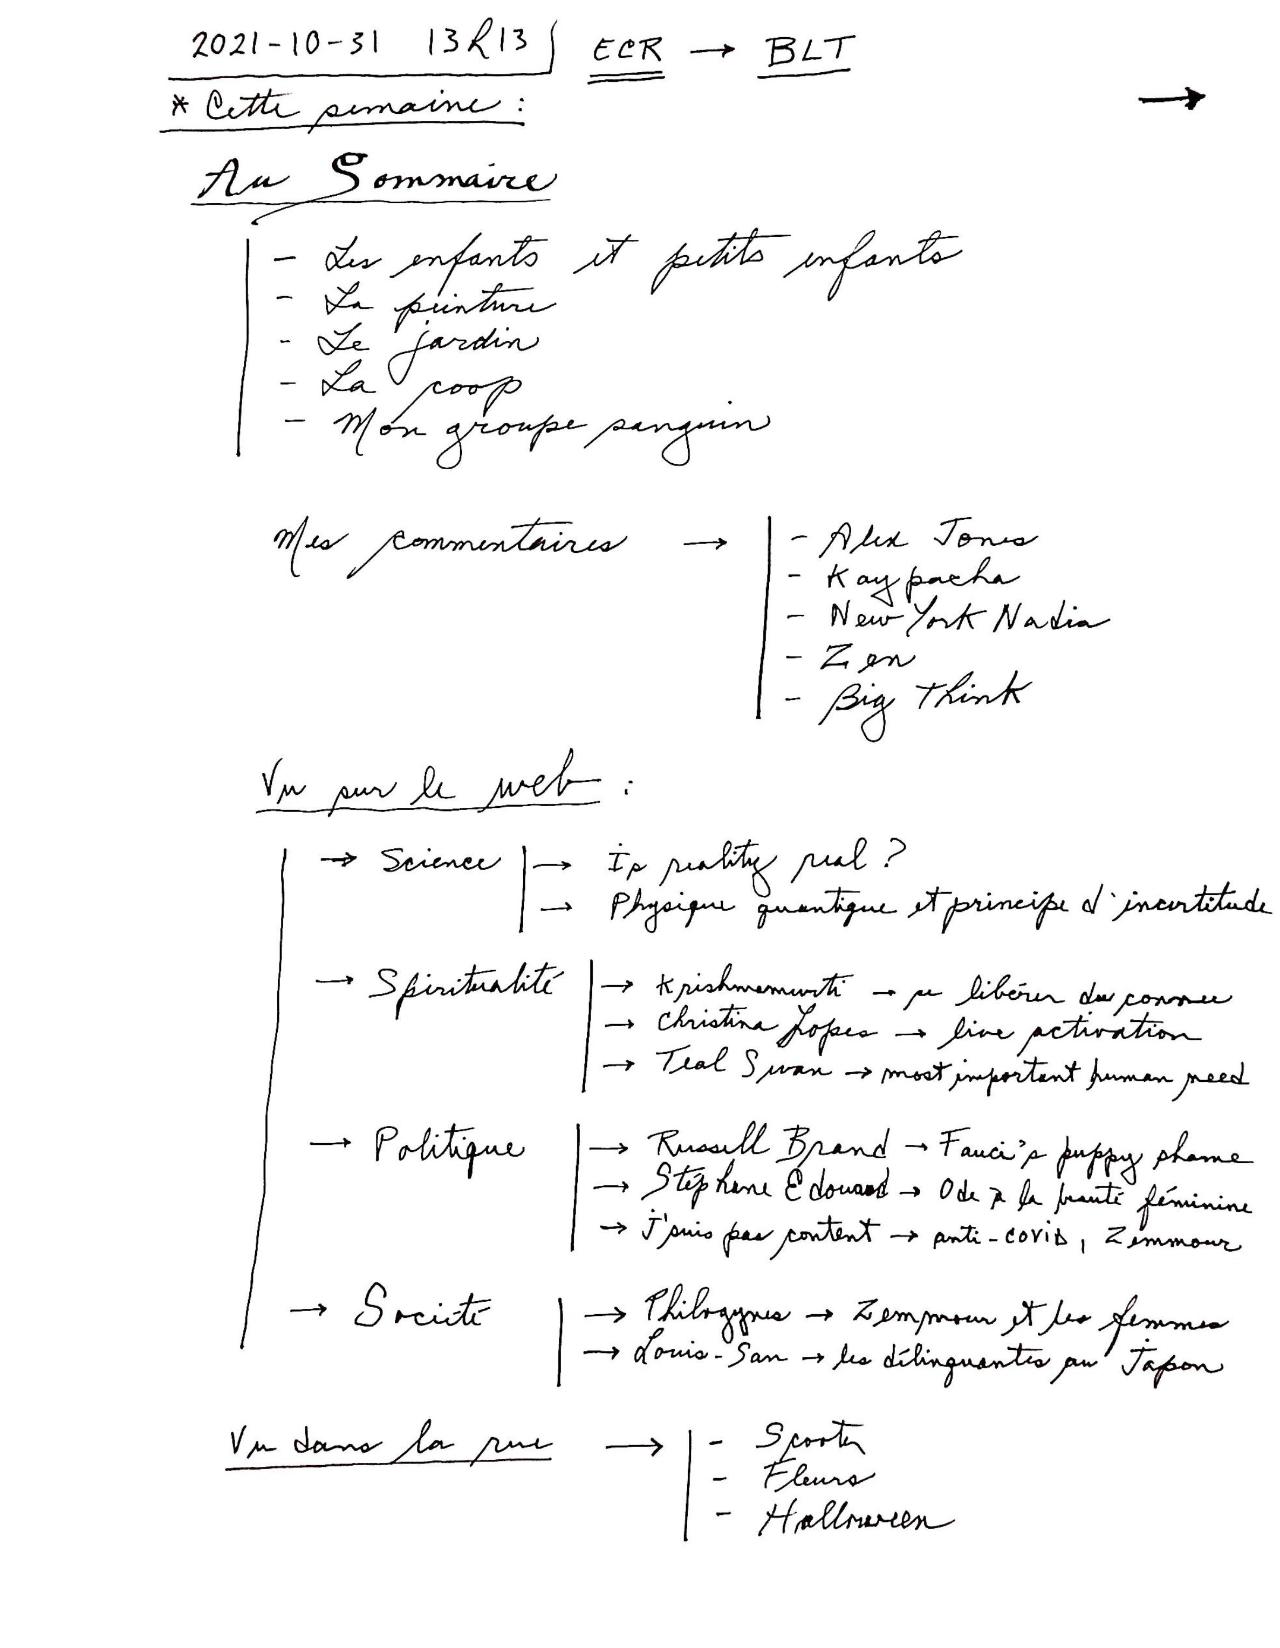 2021-10-31 13h13 ECR → BLT
→
* Cette semaine :
Au Sommaire
- Les enfants et petits enfants
- La peinture
- Le jardin
- La coop
- Mon groupe sanguin
Mes commentaires → - Alex Jones
- Kaypacha
- New York Nadia
- Zen
- Big Think
Vu sur le web :
→ Science → Is reality real ?
→ Physique quantique et principe d'incertitude
→ Spiritualité → Krishnamurti → se libérer du connu
→ Christina Lopes → live activation
→ Teal Swan → most important human need
→ Politique → Russell Brand → Fauci's puppy shame
→ Stéphane Edouard → Ode à la beauté féminine
→ J'suis pas content → anti-covid, Zemmour
→ Société → Philogynes → Zemmour et les femmes
→ Louis-San → les délinquantes au Japon
Vu dans la rue → - Scooter
- Fleurs
- Halloween